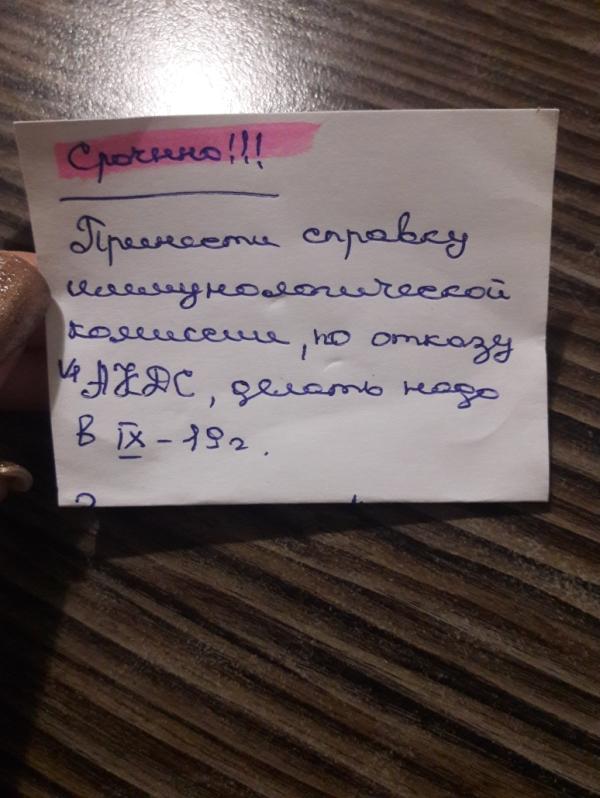 Срочно!!!
Принести справку
иммунологической
комиссии, по отказу
V4 АКДС, делать надо
в IX - 19г.